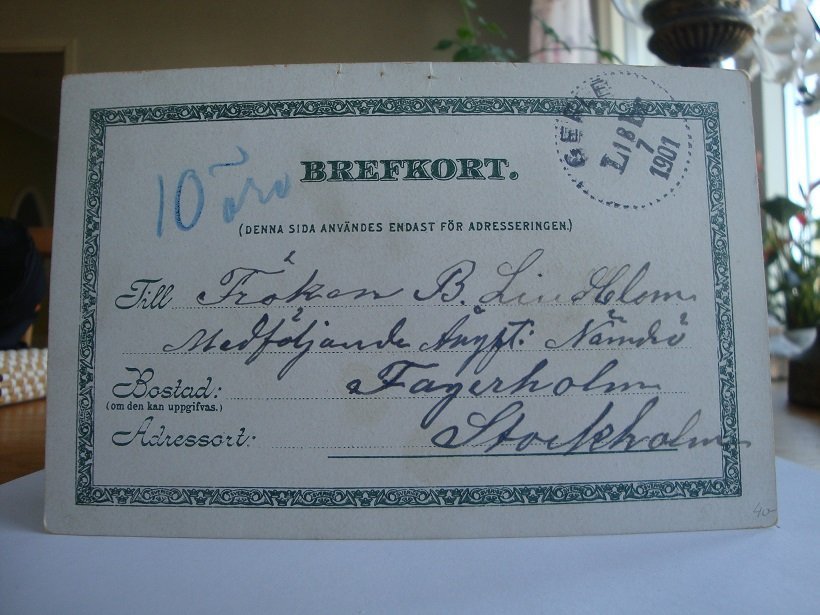 BREFKORT.
10 öre
GEFLE
LBR
18 7
1901
(DENNA SIDA ANVÄNDES ENDAST FÖR ADRESSERINGEN.)
Till Fröken B. Lindholm
Medföljande Ångf: Nämdö
Bostad: Fagerholm
(om den kan uppgifvas.)
Adressort: Stockholm
40